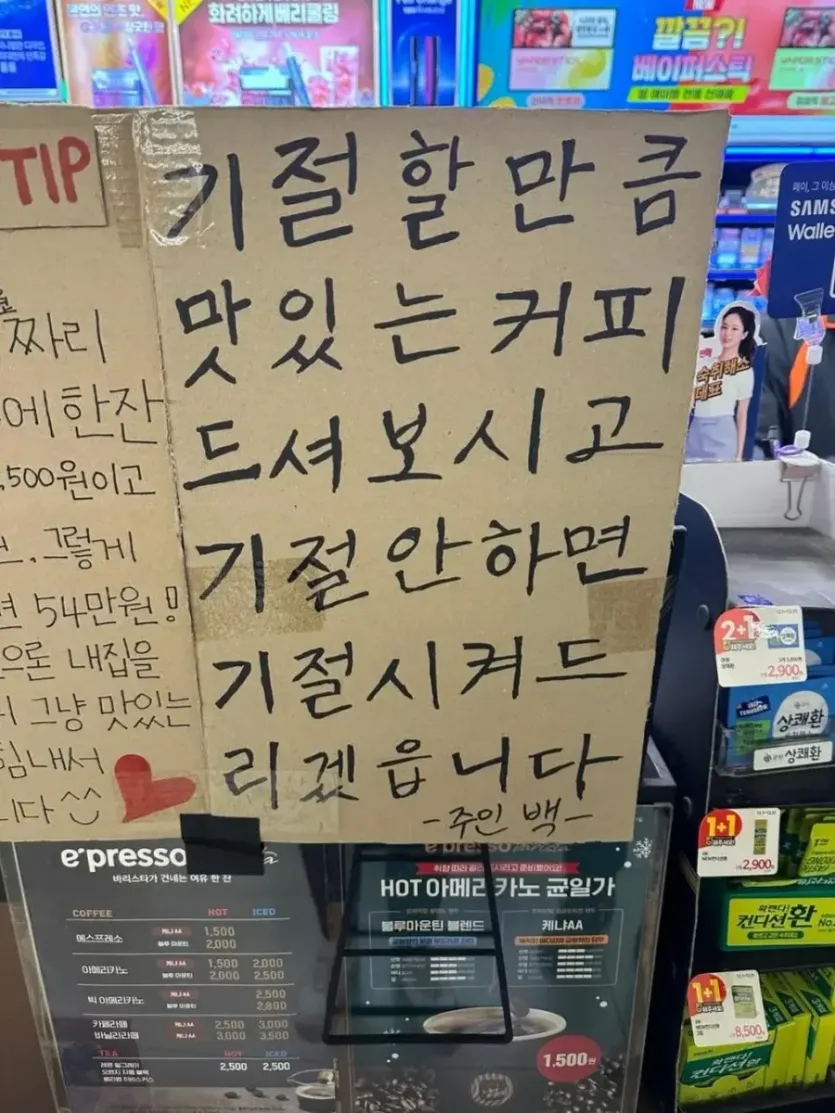 화려하게 베리쿨링
깔끔?!
베이퍼스틱
TIP
짜리
에 한잔
,500원이고
그렇게
54만원!
내집을
그냥 맛있는
힘내서
니다 ^^
기절할만큼
맛있는커피
드셔보시고
기절안하면
기절시켜드
리겠읍니다
-주인 백-
SAMS
Walle
숙취해소
대표
2+1
2,900
상쾌환
상쾌환
1+1
2,900
컨디션환
1+1
8,500원
e'presso
바리스타가 건네는 여유 한 잔
COFFEE HOT ICED
에스프레소 케냐AA 1,500
블루 마운틴 2,000
아메리카노 케냐AA 1,500 2,000
블루 마운틴 2,000 2,500
빅 아메리카노 케냐AA 2,500
블루 마운틴 2,800
카페라떼 케냐AA 2,500 3,000
바닐라라떼 케냐AA 3,000 3,500
TEA HOT ICED
2,500 2,500
HOT 아메리카노 균일가
블루마운틴 블렌드
케냐AA
1,500원